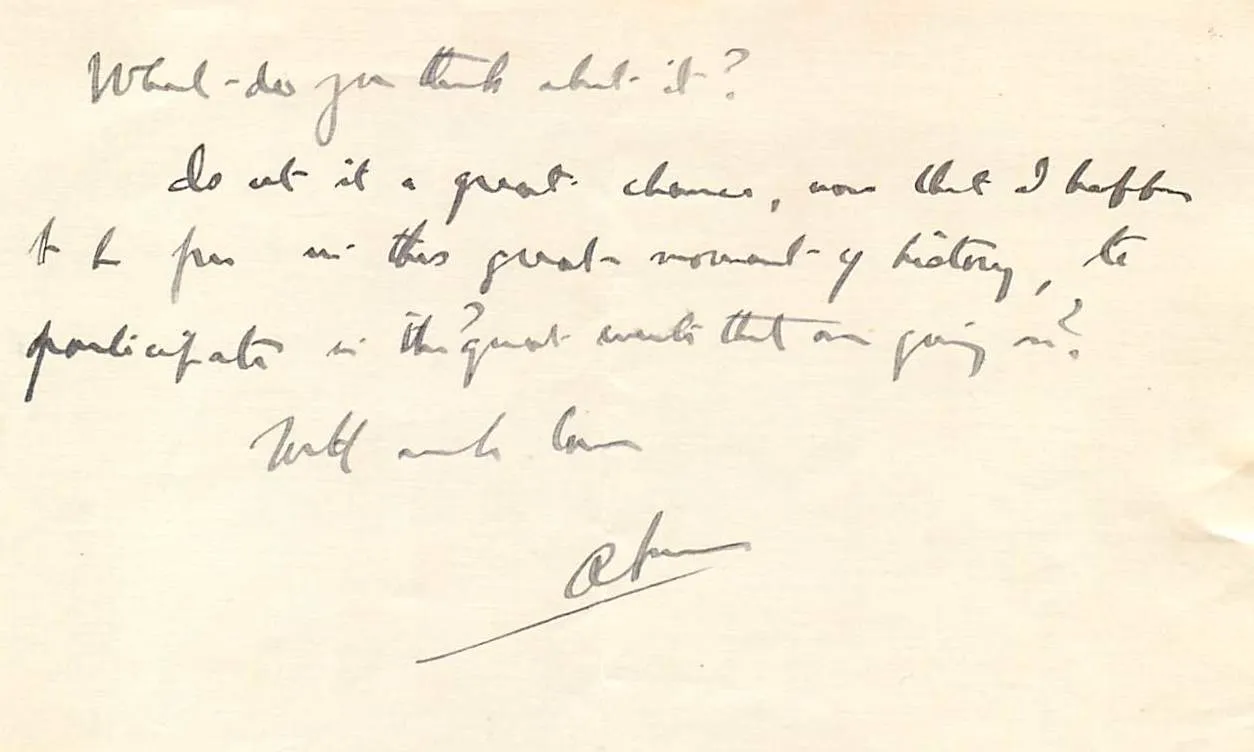 What do you think about it?
Is not it a great chance, now that I happen
to be free in this great moment of history, to
participate in the great events that are going on?
With much love